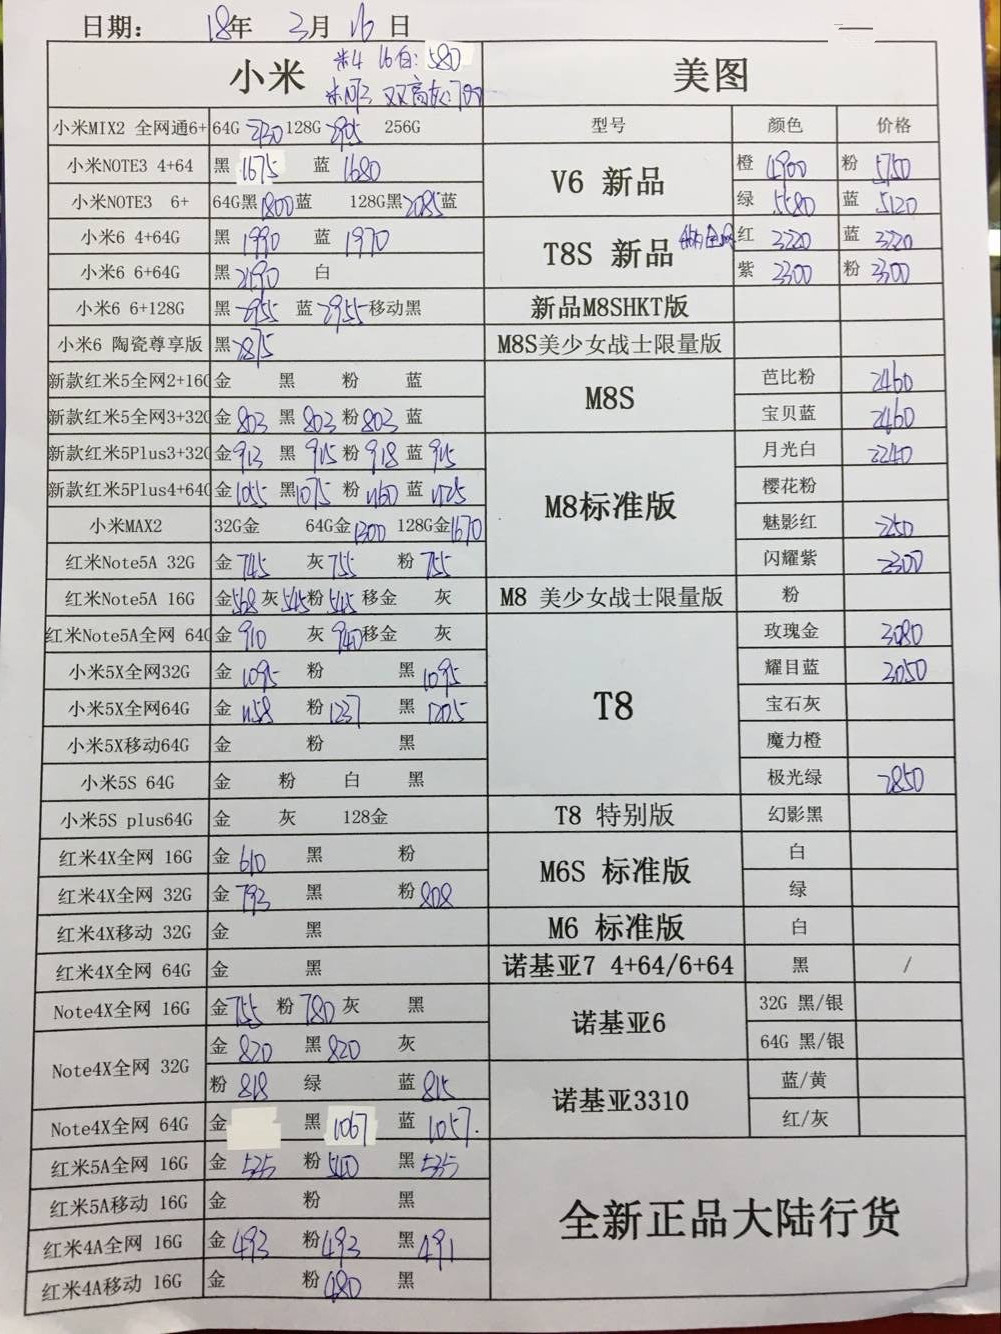 日期: 18年 3月 16日
小米 米4 16白:580
美图
小米MIX2 全网通6+ 64G 128G 256G
型号 颜色 价格
小米NOTE3 4+64 黑 1675 蓝 1680
V6 新品 橙 4900 粉 5750
小米NOTE3 6+ 64G黑 1800 蓝 128G黑 2085 蓝
绿 5580 蓝 5120
小米6 4+64G 黑 1990 蓝 1970
T8S 新品 红 3220 蓝 3220
小米6 6+64G 黑 2190 白
紫 3300 粉 3300
小米6 6+128G 黑 蓝 移动黑
新品M8SHKT版
小米6 陶瓷尊享版 黑 2875
M8S美少女战士限量版
新款红米5全网2+16G 金 黑 粉 蓝
M8S 芭比粉 2460
新款红米5全网3+32G 金 803 黑 803 粉 803 蓝
宝贝蓝 2460
新款红米5Plus3+32G 金 913 黑 915 粉 918 蓝 915
M8标准版 月光白 2240
新款红米5Plus4+64G 金 1055 黑 1075 粉 1160 蓝 1125
樱花粉
小米MAX2 32G金 64G金 1300 128G金 1670
魅影红 2250
红米Note5A 32G 金 745 灰 755 粉 755
闪耀紫 2300
红米Note5A 16G 金 568 灰 545 粉 545 移金 灰
M8 美少女战士限量版 粉
红米Note5A全网 64G 金 910 灰 940 移金 灰
T8 玫瑰金 3080
小米5X全网32G 金 1095 粉 黑 1095
耀目蓝 3050
小米5X全网64G 金 1158 粉 1237 黑 1205
宝石灰
小米5X移动64G 金 粉 黑
魔力橙
小米5S 64G 金 粉 白 黑
极光绿 2850
小米5S plus64G 金 灰 128金
T8 特别版 幻影黑
红米4X全网 16G 金 610 黑 粉
M6S 标准版 白
红米4X全网 32G 金 793 黑 粉 808
绿
红米4X移动 32G 金 黑
M6 标准版 白
红米4X全网 64G 金 黑
诺基亚7 4+64/6+64 黑 /
Note4X全网 16G 金 755 粉 780 灰 黑
诺基亚6 32G 黑/银
Note4X全网 32G 金 820 黑 820 灰
64G 黑/银
粉 818 绿 蓝 815
诺基亚3310 蓝/黄
Note4X全网 64G 金 黑 1067 蓝 1057.
红/灰
红米5A全网 16G 金 535 粉 540 黑 535
红米5A移动 16G 金 粉 黑
全新正品大陆行货
红米4A全网 16G 金 493 粉 493 黑 491
红米4A移动 16G 金 粉 480 黑